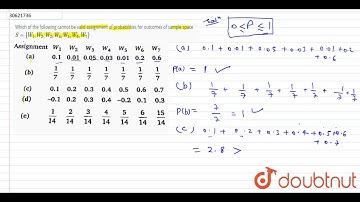 30621736
Which of the following cannot be valid assignment of probabilities for outcomes of sample space
S = {W₁, W₂, W₃, W₄, W₅, W₆, W₇}
Assignment W₁ W₂ W₃ W₄ W₅ W₆ W₇
(a) 0.1 0.01 0.05 0.03 0.01 0.2 0.6
(b) 1/7 1/7 1/7 1/7 1/7 1/7 1/7
(c) 0.1 0.2 0.3 0.4 0.5 0.6 0.7
(d) −0.1 0.2 0.3 0.4 -0.2 0.1 0.3
(e) 1/14 2/14 3/14 4/14 5/14 6/14 15/14
0 ≤ P ≤ 1
(a) 0.1 + 0.01 + 0.05 + 0.03 + 0.01 + 0.2
+ 0.6
P(a) = 1 ✓
(b) 1/7 + 1/7 + 1/7 + 1/7 + 1/7 + 1/7 + 1/7
P(b) = 7/7 = 1 ✓
(c) 0.1 + 0.2 + 0.3 + 0.4 + 0.5 + 0.6
+ 0.7
= 2.8 >
doubtnut